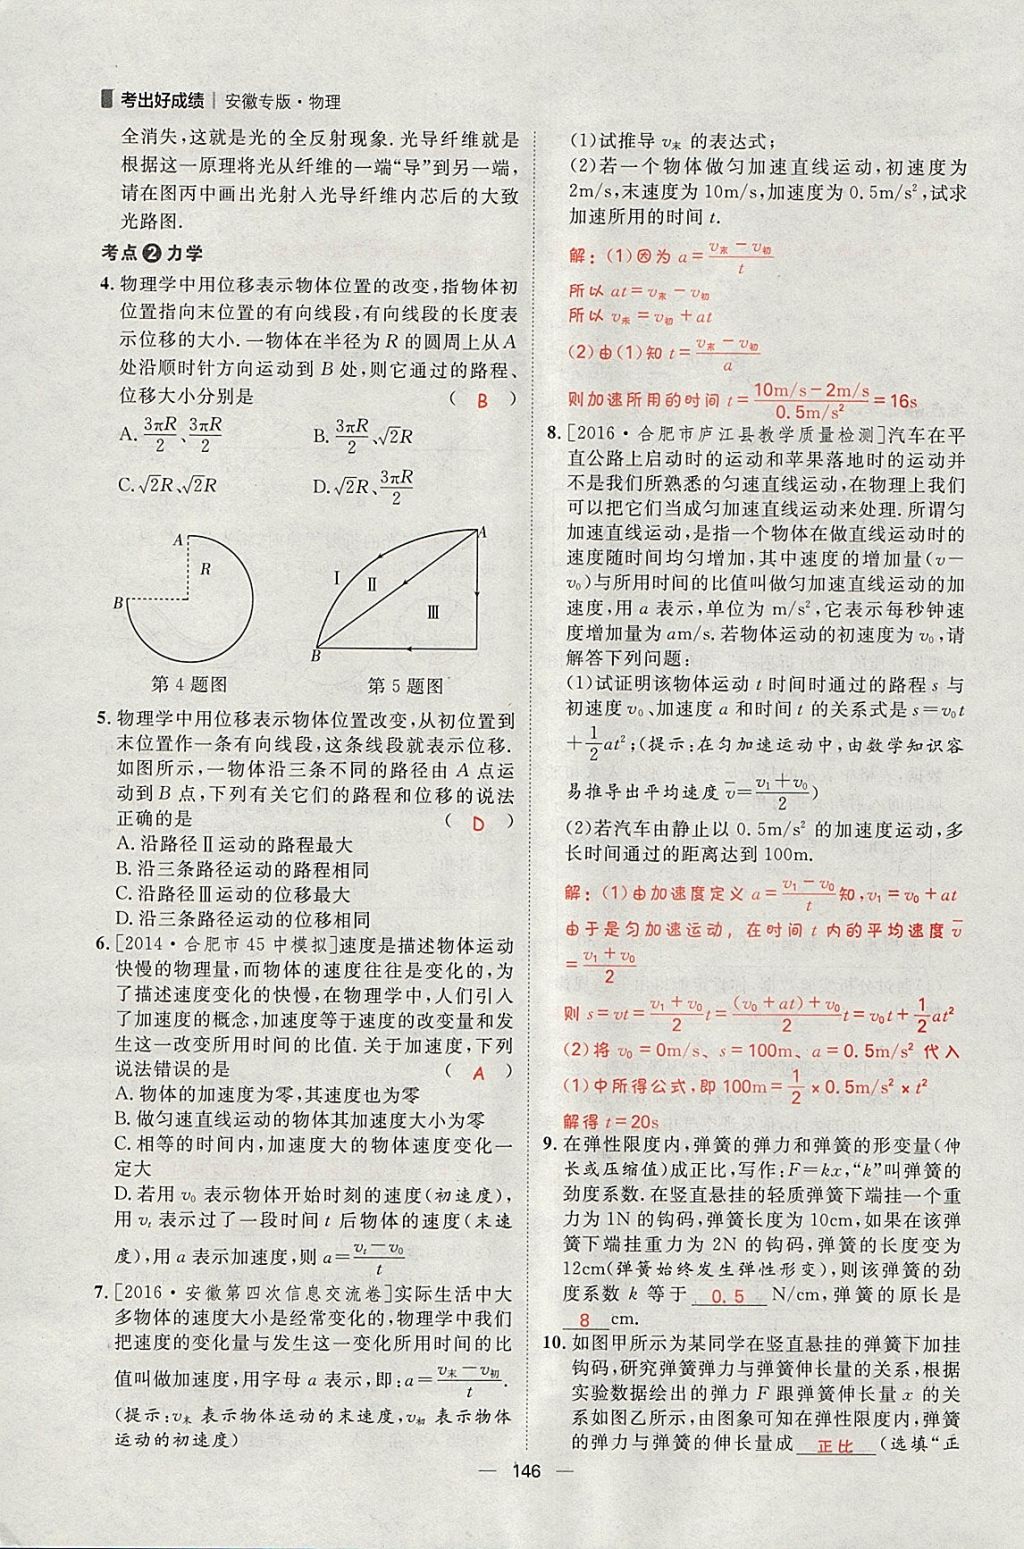 考出好成绩 | 安徽专版·物理
全消失,这就是光的全反射现象.光导纤维就是
根据这一原理将光从纤维的一端“导”到另一端,
请在图丙中画出光射入光导纤维内芯后的大致
光路图.
考点2力学
4. 物理学中用位移表示物体位置的改变,指物体初
位置指向末位置的有向线段,有向线段的长度表
示位移的大小.一物体在半径为R的圆周上从A
处沿顺时针方向运动到B处,则它通过的路程、
位移大小分别是 ( B )
A. 3πR/2、3πR/2 B. 3πR/2、√2R
C. √2R、√2R D. √2R、3πR/2
A
R
B
第4题图
A
Ⅰ
Ⅱ
Ⅲ
B
第5题图
5. 物理学中用位移表示物体位置改变,从初位置到
末位置作一条有向线段,这条线段就表示位移.
如图所示,一物体沿三条不同的路径由A点运
动到B点,下列有关它们的路程和位移的说法
正确的是 ( D )
A. 沿路径Ⅱ运动的路程最大
B. 沿三条路径运动的路程相同
C. 沿路径Ⅲ运动的位移最大
D. 沿三条路径运动的位移相同
6. [2014·合肥市45中模拟]速度是描述物体运动
快慢的物理量,而物体的速度往往是变化的,为
了描述速度变化的快慢,在物理学中,人们引入
了加速度的概念,加速度等于速度的改变量和发
生这一改变所用时间的比值.关于加速度,下列
说法错误的是 ( A )
A. 物体的加速度为零,其速度也为零
B. 做匀速直线运动的物体其加速度大小为零
C. 相等的时间内,加速度大的物体速度变化一
定大
D. 若用v₀表示物体开始时刻的速度(初速度),
用vₜ表示过了一段时间t后物体的速度(末速
度),用a表示加速度,则a=(vₜ−v₀)/t
7. [2016·安徽第四次信息交流卷]实际生活中大
多物体的速度大小是经常变化的,物理学中我们
把速度的变化量与发生这一变化所用时间的比
值叫做加速度,用字母a表示,即:a=(v末−v初)/t.
(提示:v末表示物体运动的末速度,v初表示物体
运动的初速度)
(1)试推导v末的表达式;
(2)若一个物体做匀加速直线运动,初速度为
2m/s,末速度为10m/s,加速度为0.5m/s²,试求
加速所用的时间t.
解:(1)因为a=(v末−v初)/t
所以at=v末−v初
所以v末=v初+at
(2)由(1)知t=(v末−v初)/a
则加速所用的时间t=(10m/s−2m/s)/(0.5m/s²)=16s
8. [2016·合肥市庐江县教学质量检测]汽车在平
直公路上启动时的运动和苹果落地时的运动并
不是我们所熟悉的匀速直线运动,在物理上我们
可以把它们当成匀加速直线运动来处理.所谓匀
加速直线运动,是指一个物体在做直线运动时的
速度随时间均匀增加,其中速度的增加量(v−
v₀)与所用时间的比值叫做匀加速直线运动的加
速度,用a表示,单位为m/s²,它表示每秒钟速
度增加量为am/s.若物体运动的初速度为v₀,请
解答下列问题:
(1)试证明该物体运动t时间时通过的路程s与
初速度v₀、加速度a和时间t的关系式是s=v₀t
+1/2at²;(提示:在匀加速运动中,由数学知识容
易推导出平均速度v̄=(v₁+v₀)/2)
(2)若汽车由静止以0.5m/s²的加速度运动,多
长时间通过的距离达到100m.
解:(1)由加速度定义a=(v₁−v₀)/t知,v₁=v₀+at
由于是匀加速运动,在时间t内的平均速度v̄
=(v₁+v₀)/2
则s=vt=(v₁+v₀)/2t=((v₀+at)+v₀)/2t=v₀t+1/2at²
(2)将v₀=0m/s、s=100m、a=0.5m/s²代入
(1)中所得公式,即100m=1/2×0.5m/s²×t²
解得t=20s
9. 在弹性限度内,弹簧的弹力和弹簧的形变量(伸
长或压缩值)成正比,写作:F=kx,“k”叫弹簧的
劲度系数.在竖直悬挂的轻质弹簧下端挂一个重
力为1N的钩码,弹簧长度为10cm,如果在该弹
簧下端挂重力为2N的钩码,弹簧的长度变为
12cm(弹簧始终发生弹性形变),则该弹簧的劲
度系数k等于 0.5 N/cm,弹簧的原长是
8 cm.
10. 如图甲所示为某同学在竖直悬挂的弹簧下加挂
钩码,研究弹簧弹力与弹簧伸长量的关系,根据
实验数据绘出的弹力F跟弹簧伸长量x的关
系如图乙所示,由图象可知在弹性限度内,弹簧
的弹力与弹簧的伸长量成 正比 (选填“正
— 146 —